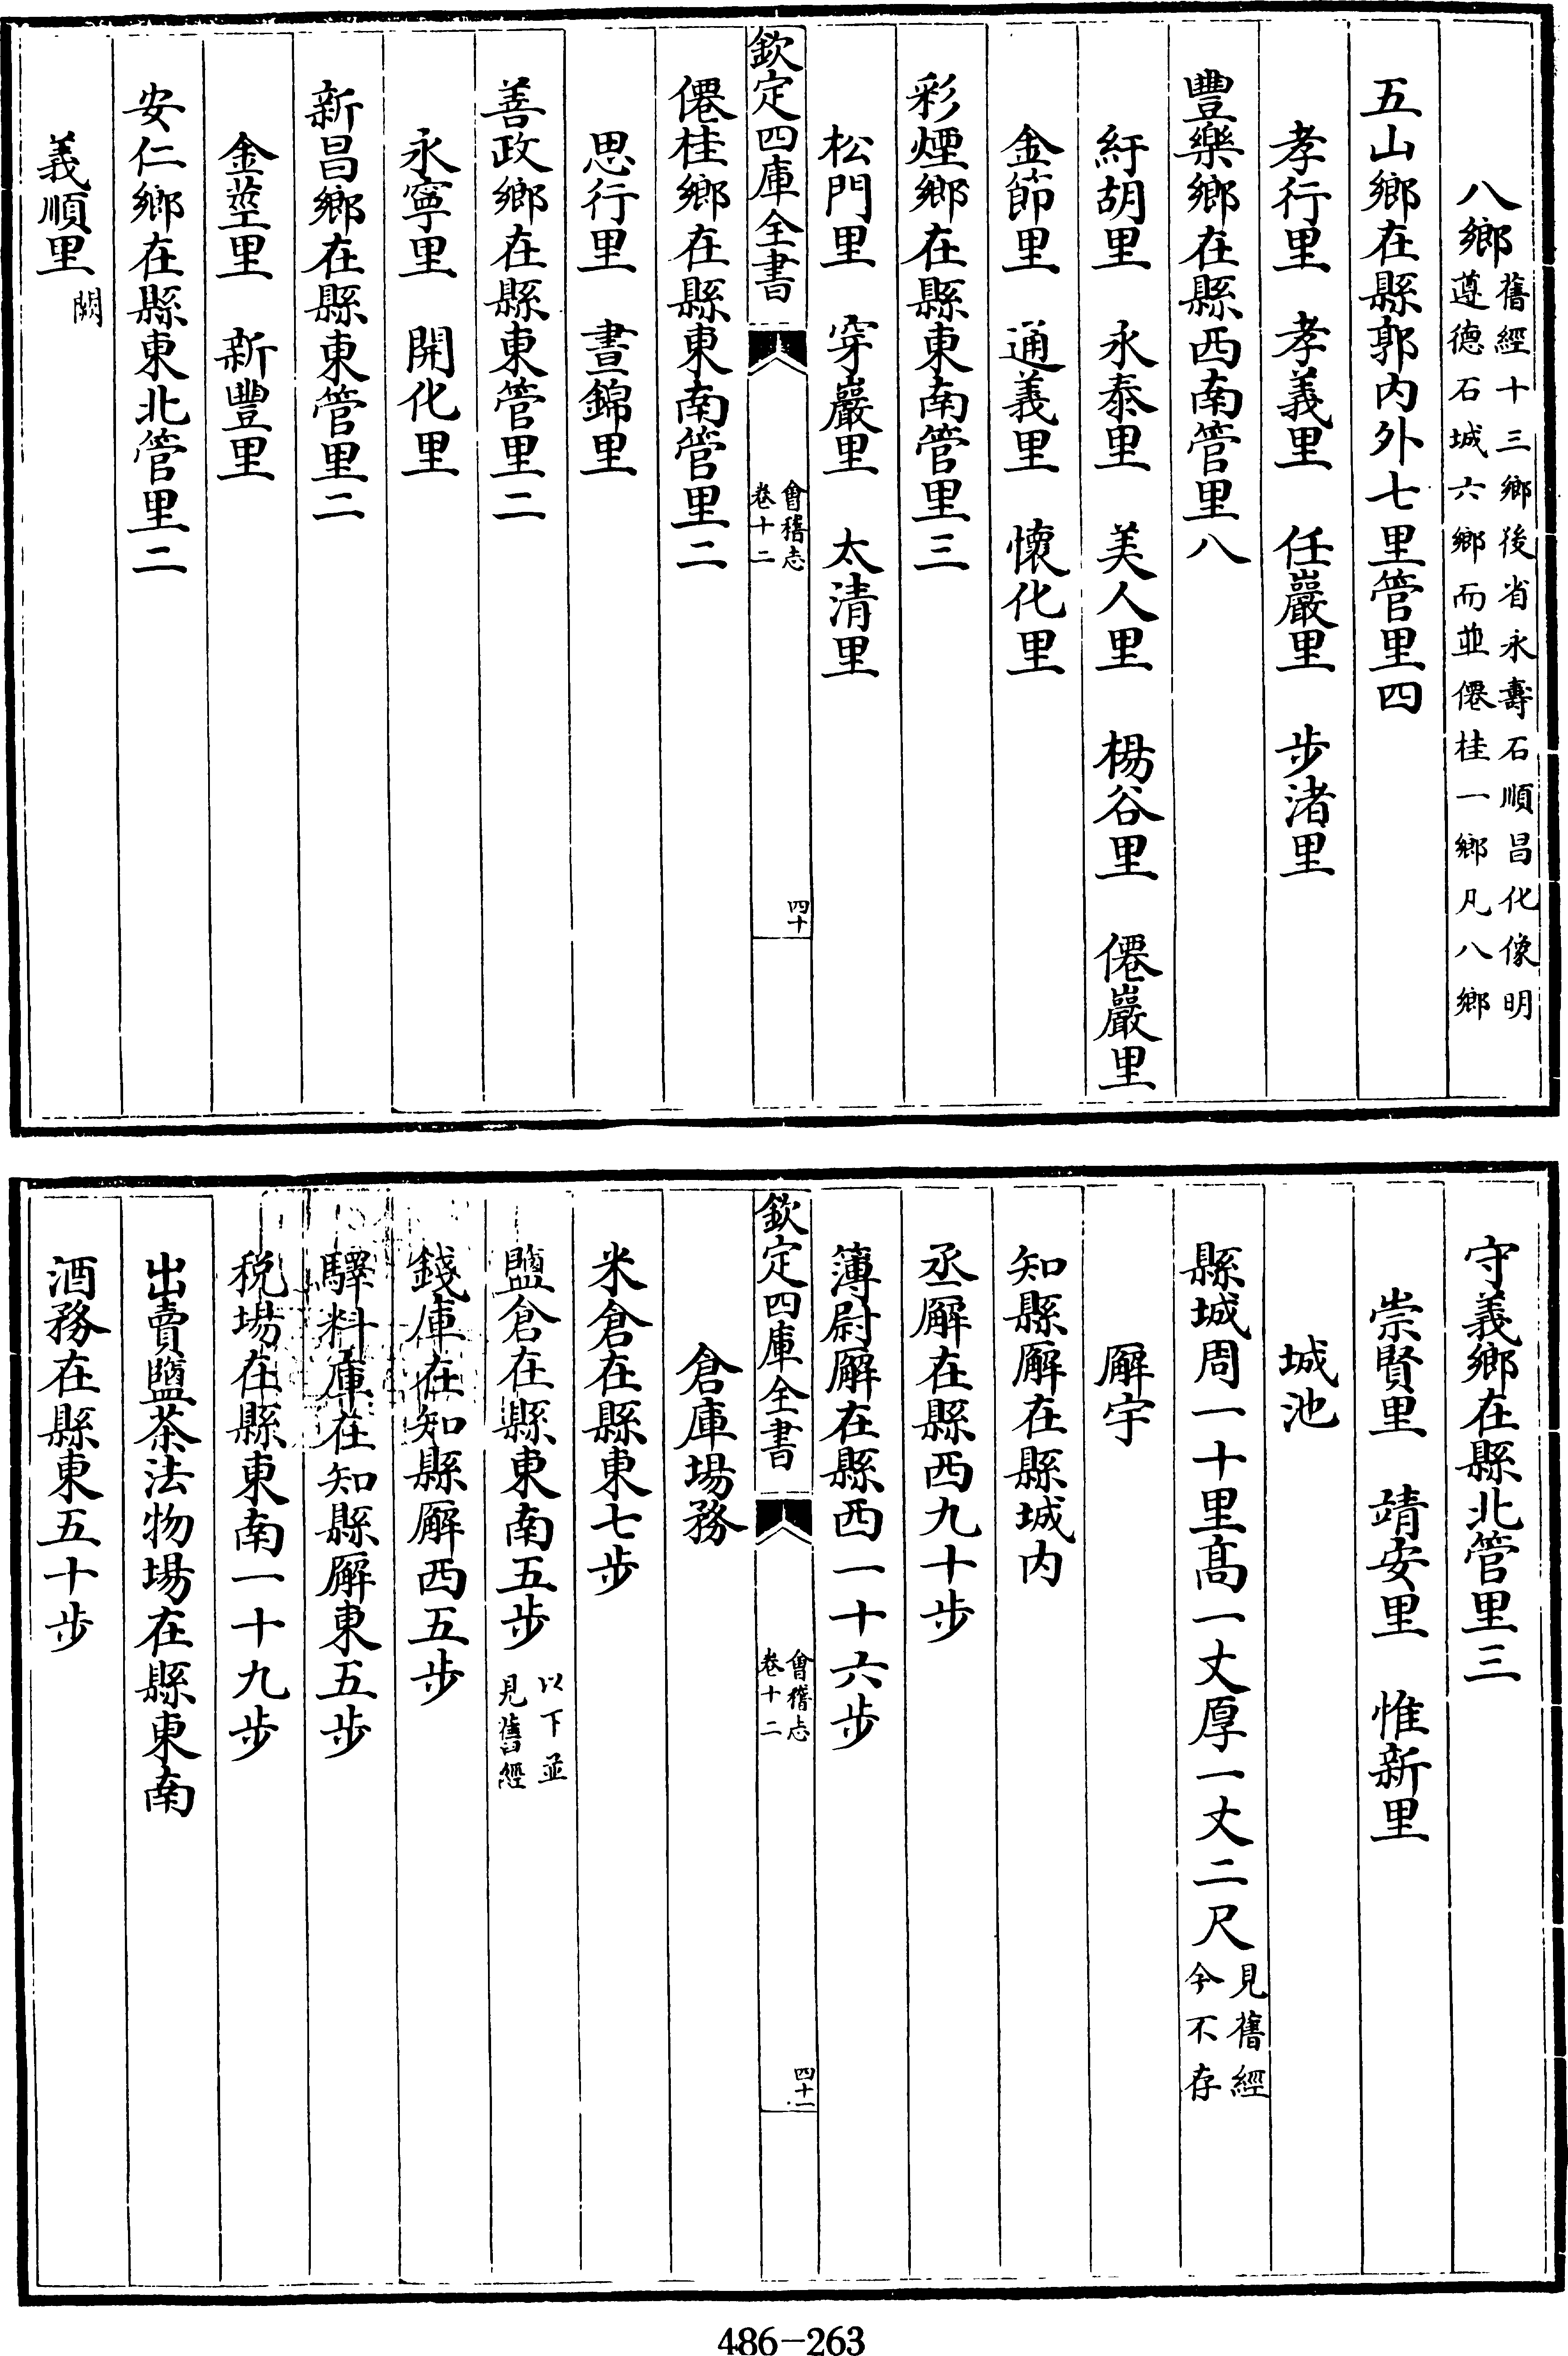 八鄉舊經十三鄉後省永壽石順昌化像明
遵德石城六鄉而並僊桂一鄉凡八鄉
五山鄉在縣郭内外七里管里四
孝行里　孝義里　任巖里　步渚里
豐樂鄉在縣西南管里八
紆胡里　永泰里　美人里　楊谷里　僊巖里
金節里　通義里　懷化里
彩煙鄉在縣東南管里三
松門里　穿巖里　太清里
欽定四庫全書
會稽志
卷十二
四十
僊桂鄉在縣東南管里二
思行里　晝錦里
善政鄉在縣東管里二
永寧里　開化里
新昌鄉在縣東管里二
金壂里　新豐里
安仁鄉在縣東北管里二
義順里　闕
守義鄉在縣北管里三
崇賢里　靖安里　惟新里
城池
縣城周一十里髙一丈厚一丈二尺見舊經
今不存
廨宇
知縣廨在縣城内
丞廨在縣西九十步
簿尉廨在縣西一十六步
欽定四庫全書
會稽志
卷十二
四十一
倉庫場務
米倉在縣東七步
鹽倉在縣東南五步以下並
見舊經
錢庫在知縣廨西五步
驛料庫在知縣廨東五步
税場在縣東南一十九步
出賣鹽茶法物場在縣東南
酒務在縣東五十步
486-263